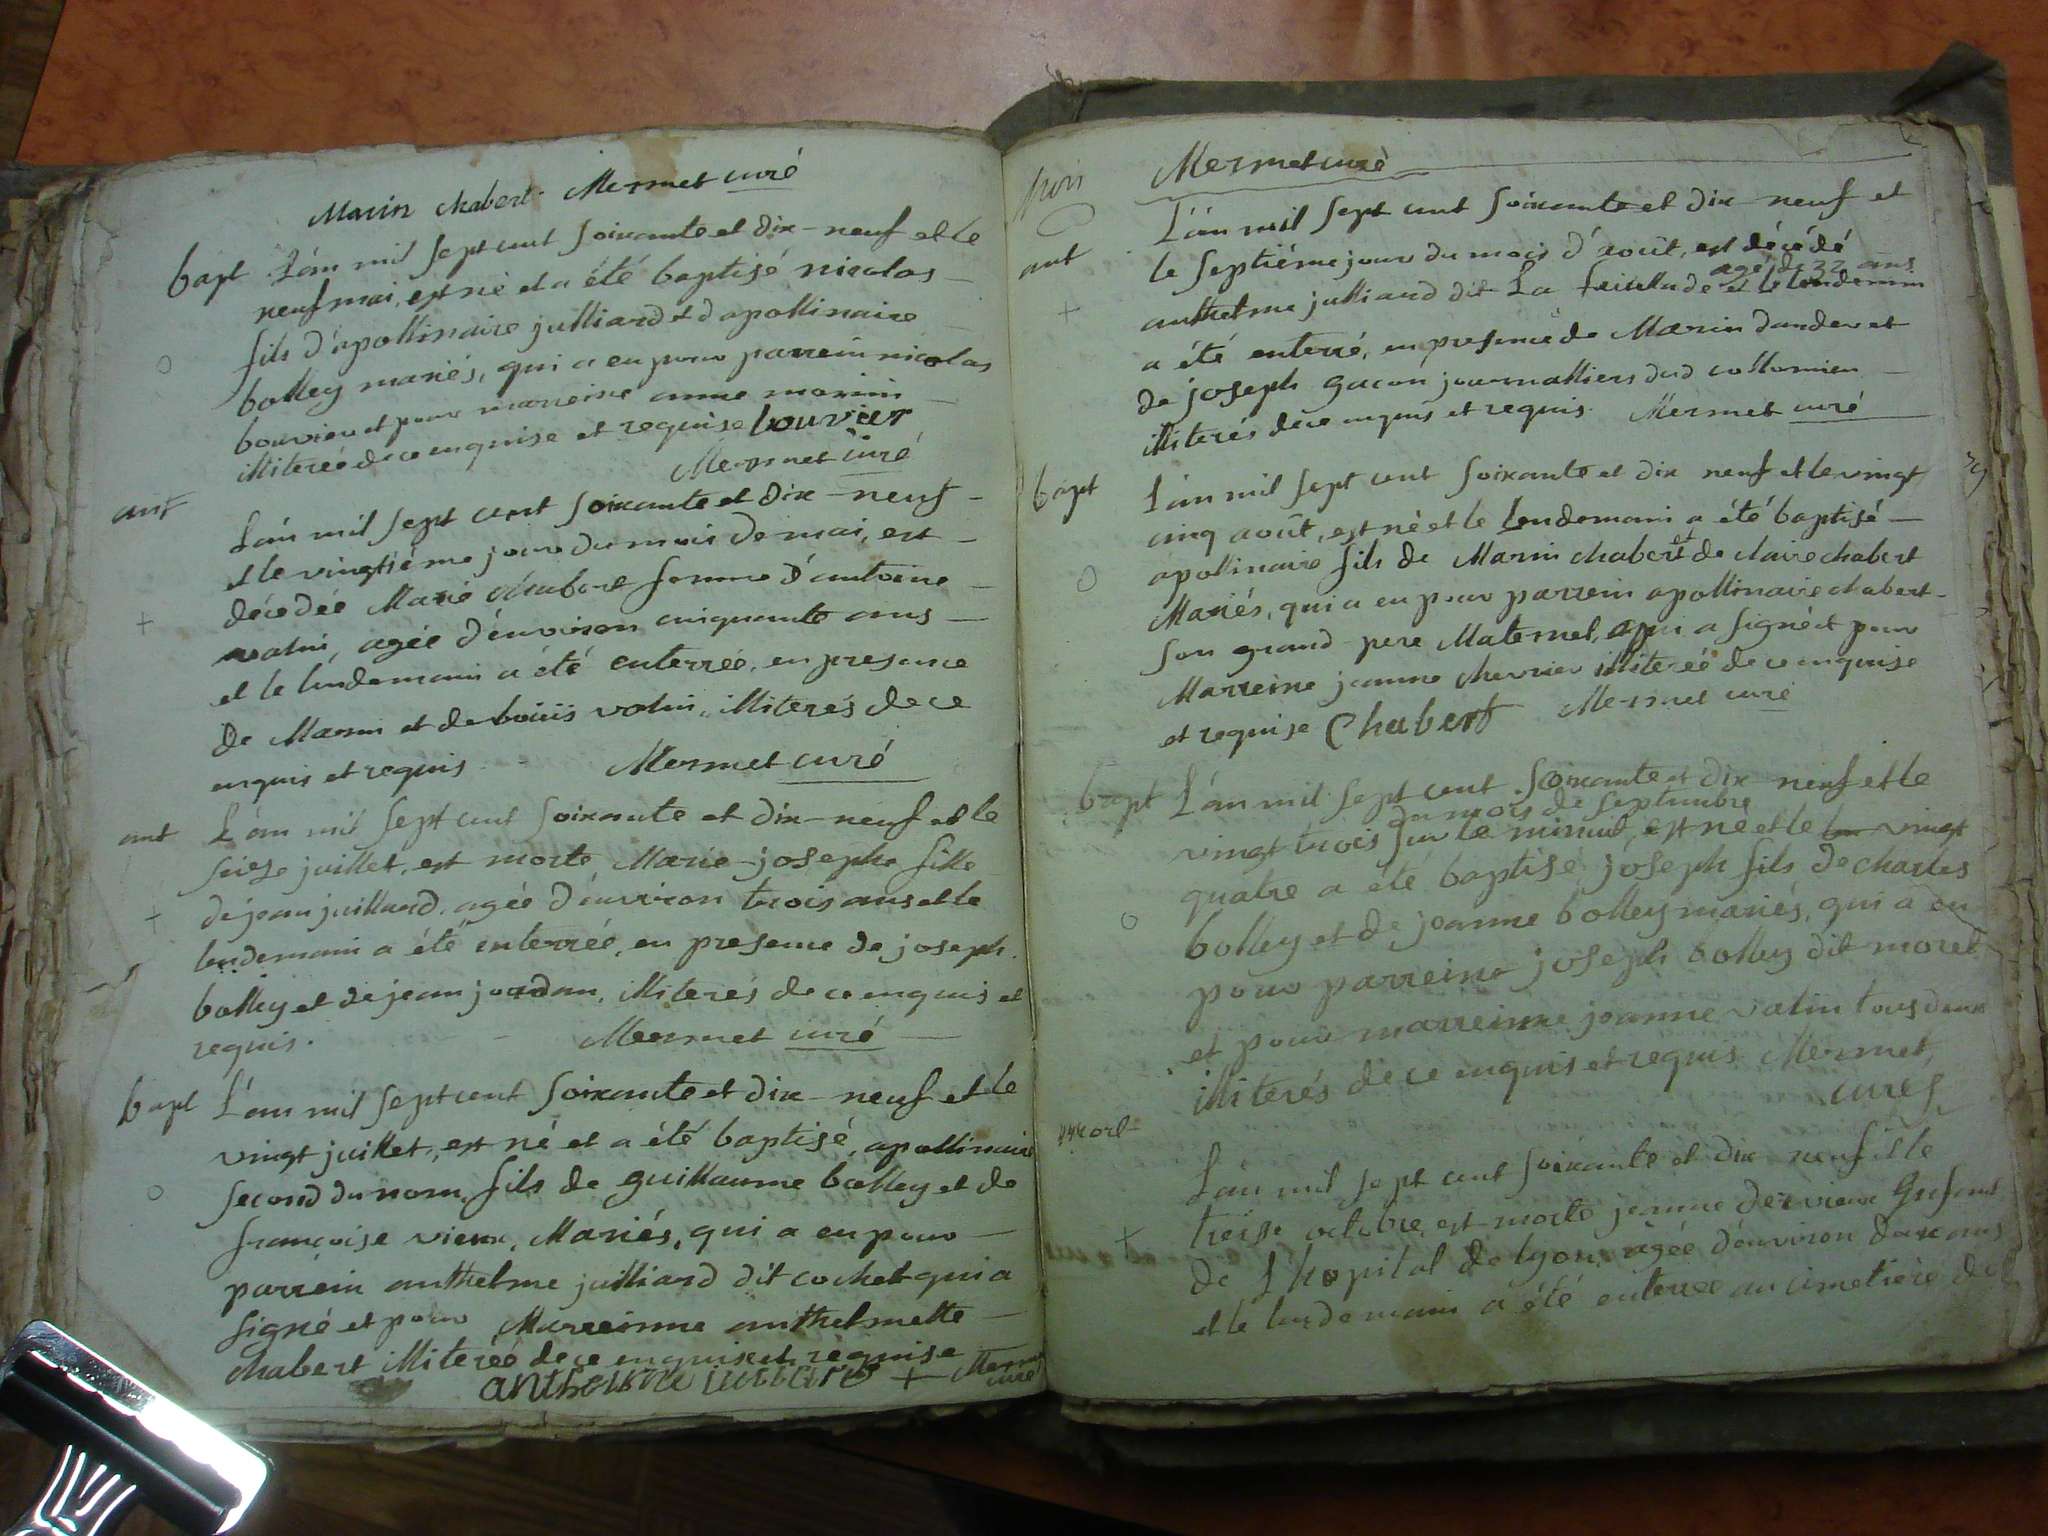 Marin chabert. Mermet curé
bapt L'an mil sept cent soixante et dix-neuf et le
neuf mai, est né et a été baptisé nicolas
fils d'apollinaire julliard et d'apollinaire
bolley mariés, qui a eu pour parrein nicolas
bouvier et pour marreine anne morin
illiterée de ce enquise et requise bouvier
Mermet curé
ant
L'an mil sept cent soixante et dix-neuf
et le vingtiéme jour du mois de mai, est
décédée Marie chabert femme d'antoine
vatin, agée d'environ cinquante ans
et le lendemain a été enterrée, en presence
de Marin et de vatin, illiterés de ce
enquis et requis Mermet curé
ant L'an mil sept cent soixante et dix-neuf et le
seize juillet, est morte Marie-josephe fille
de jean juilliard, agée d'environ trois ans et le
lendemain a été enterrée, en presence de joseph
bolley et de jean jourdan, illiterés de ce enquis et
requis. Mermet curé
bapt L'an mil sept cent soixante et dix-neuf et le
vingt juillet, est né et a été baptisé, apollinaire
second du nom, fils de guillaume bolley et de
françoise vieux, Mariés, qui a eu pour
parrein anthelme juilliard dit cochet qui a
signé et pour Marreinne anthelmette
chabert illiterée de ce enquise et requise
anthelme + Mermet
curé
Mermet curé
L'an mil sept cent soixante et dix-neuf et
ant le septiéme jour du mois d'août, est décédé
agé de 32 ans
anthelme julliard dit La et le lendemain
a été enterré, en presence de Marin dandev et
de joseph gacon journalliers dud collomieu
illiterés de ce enquis et requis. Mermet curé
bapt L'an mil sept cent soixante et dix neuf et le vingt
cinq août, est né et le lendemain a été baptisé
apollinaire fils de Marin chabert et de claire chabert
Mariés, qui a eu pour parrein apollinaire chabert
son grand-pere Maternel, qui a signé et pour
Marreine jeanne chevrier illiterée de ce enquise
et requise Chabert Mermet curé
bapt L'an mil sept cent soixante et dix neuf et le
du mois de septembre
vingt trois sur le minuit, est né et le vingt
quatre a été baptisé joseph fils de charles
bolley et de jeanne bolley mariés, qui a eu
pour parreine joseph bolley dit morel
et pour marreinne jeanne vatin tous deux
illiterés de ce enquis et requis Mermet,
curé
mort
L'an mil sept cent soixante et dix neuf et le
treise octobre, est morte jeanne dervieux enfant
de l'hopital de lyon, agée d'environ deux ans
et le lendemain a été enterrée au cimetiere de